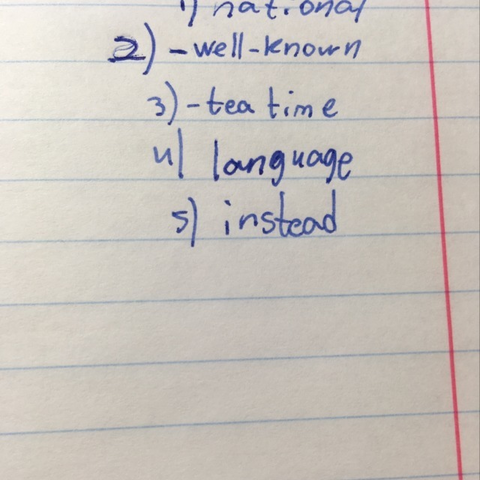 1) national
2) -well-known
3) -tea time
4) language
5) instead